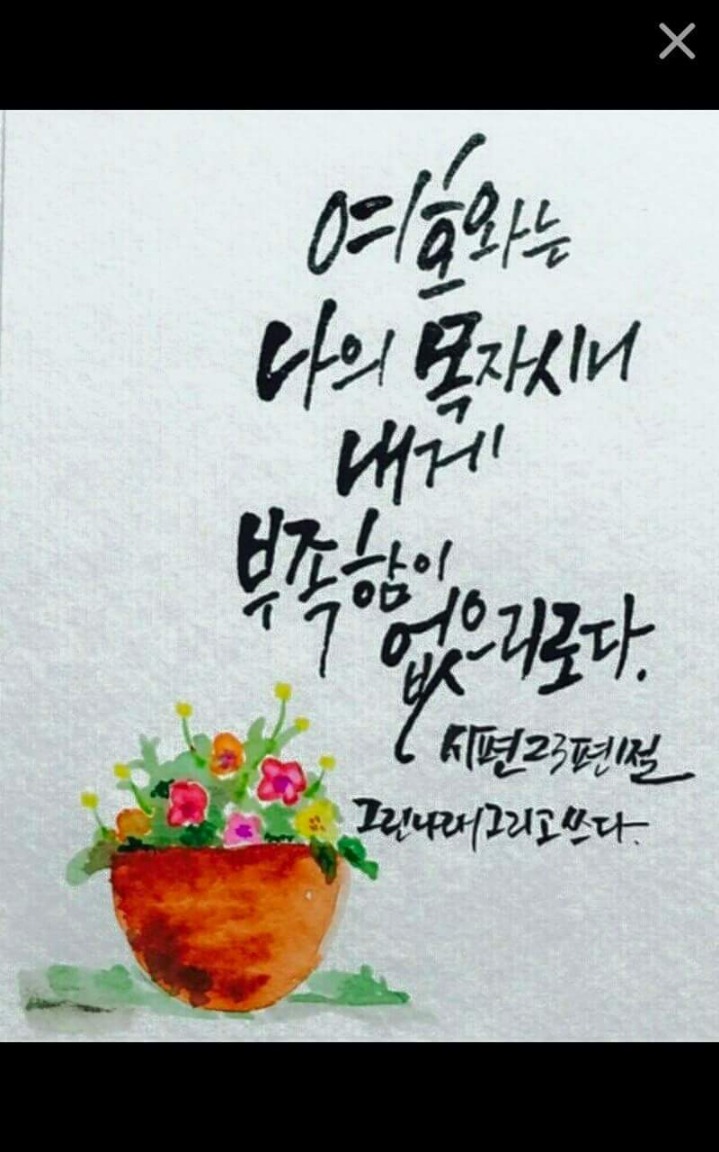 여호와는
나의 목자시니
내게
부족함이
없으리로다.
시편23편1절
그린나래그리고쓰다.